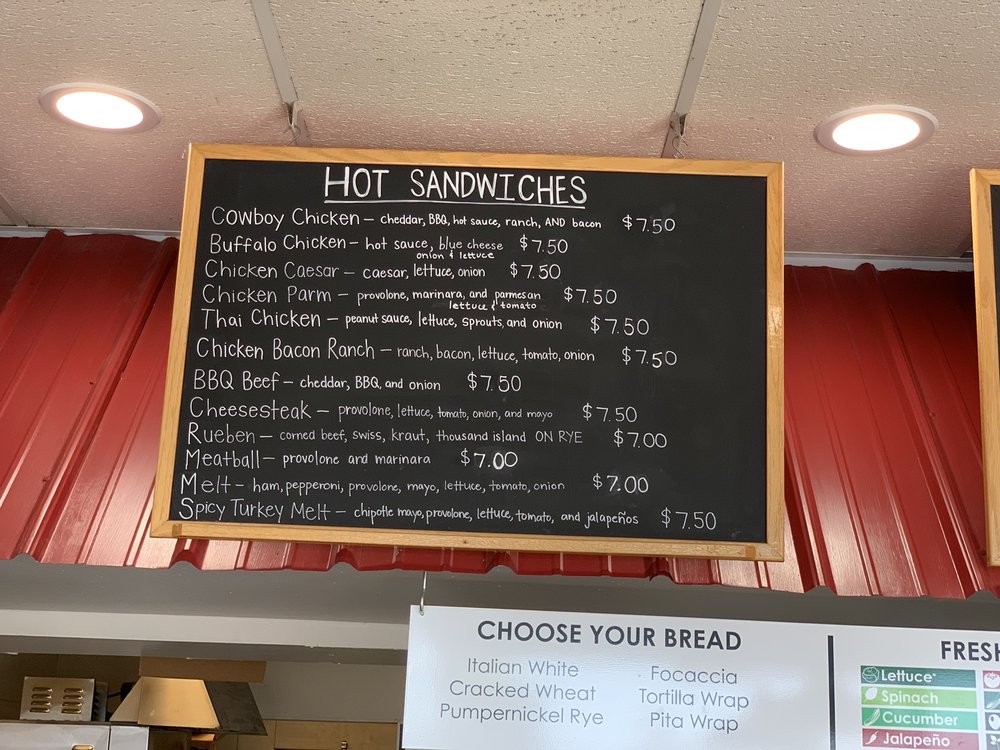 HOT SANDWICHES
Cowboy Chicken – cheddar, BBQ, hot sauce, ranch, AND bacon $7.50
Buffalo Chicken – hot sauce, blue cheese $7.50
onion & lettuce
Chicken Caesar – caesar, lettuce, onion $7.50
Chicken Parm – provolone, marinara, and parmesan $7.50
lettuce & tomato
Thai Chicken – peanut sauce, lettuce, sprouts, and onion $7.50
Chicken Bacon Ranch – ranch, bacon, lettuce, tomato, onion $7.50
BBQ Beef – cheddar, BBQ, and onion $7.50
Cheesesteak – provolone, lettuce, tomato, onion, and mayo $7.50
Rueben – corned beef, swiss, kraut, thousand island ON RYE $7.00
Meatball – provolone and marinara $7.00
Melt – ham, pepperoni, provolone, mayo, lettuce, tomato, onion $7.00
Spicy Turkey Melt – chipotle mayo, provolone, lettuce, tomato, and jalapeños $7.50
CHOOSE YOUR BREAD
Italian White
Cracked Wheat
Pumpernickel Rye
Focaccia
Tortilla Wrap
Pita Wrap
FRESH
Lettuce*
Spinach
Cucumber
Jalapeño